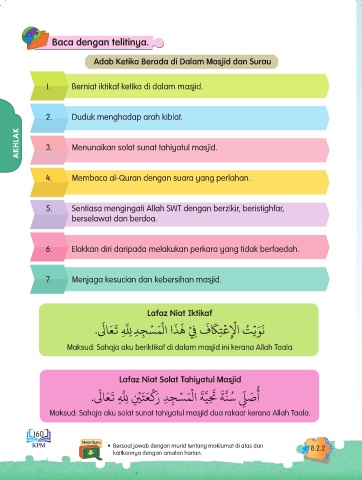 Baca dengan telitinya.
Adab Ketika Berada di Dalam Masjid dan Surau
1. Berniat iktikaf ketika di dalam masjid.
2. Duduk menghadap arah kiblat.
3. Menunaikan solat sunat tahiyatul masjid.
4. Membaca al-Quran dengan suara yang perlahan.
5. Sentiasa mengingati Allah SWT dengan berzikir, beristighfar,
berselawat dan berdoa.
6. Elakkan diri daripada melakukan perkara yang tidak berfaedah.
7. Menjaga kesucian dan kebersihan masjid.
AKHLAK
Lafaz Niat Iktikaf
نَوَيْتُ الْإِعْتِكَافَ فِيْ هَذَا الْمَسْجِدِ لِلَّهِ تَعَالَى.
Maksud: Sahaja aku beriktikaf di dalam masjid ini kerana Allah Taala.
Lafaz Niat Solat Tahiyatul Masjid
أُصَلِّي سُنَّةَ تَحِيَّةِ الْمَسْجِدِ رَكْعَتَيْنِ لِلَّهِ تَعَالَى.
Maksud: Sahaja aku solat sunat tahiyatul masjid dua rakaat kerana Allah Taala.
160
KPM
Nota Guru
• Bersoal jawab dengan murid tentang maklumat di atas dan
kaitkannya dengan amalan harian.
8.2.2